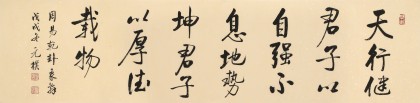 天行健
君子以
自强不
息地势
坤君子
以厚德
载物
周易乾卦象辞
戊戌年元朴